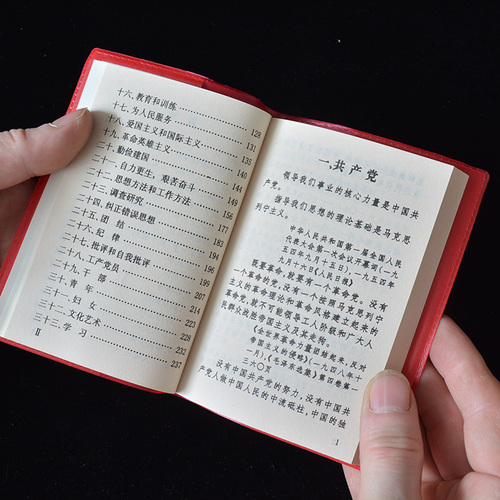 十六、教育和训练
128
十七、为人民服务
131
十八、爱国主义和国际主义
135
十九、革命英雄主义
140
二十、勤俭建国
144
二十一、自力更生,艰苦奋斗
149
二十二、思想方法和工作方法
156
二十三、调查研究
177
二十四、纠正错误思想
184
二十五、团结
194
二十六、纪律
196
二十七、批评和自我批评
199
二十八、共产党员
207
二十九、干部
214
三十、青年
221
三十一、妇女
228
三十二、文化艺术
232
三十三、学习
237
II
一、共产党
领导我们事业的核心力量是中国共
产党。
指导我们思想的理论基础是马克思
列宁主义。
中华人民共和国第一届全国人民
代表大会第一次会议开幕词(一九
五四年九月十五日),一九五四年
九月十六日《人民日报》
既要革命,就要有一个革命党。没有
一个革命的党,没有一个按照马克思列宁
主义的革命理论和革命风格建立起来的
革命党,就不可能领导工人阶级和广大人
民群众战胜帝国主义及其走狗。
《全世界革命力量团结起来,反对
帝国主义的侵略》(一九四八年十
一月),《毛泽东选集》第四卷第一
三六〇页
没有中国共产党的努力,没有中国共
产党人做中国人民的中流砥柱,中国的独
1